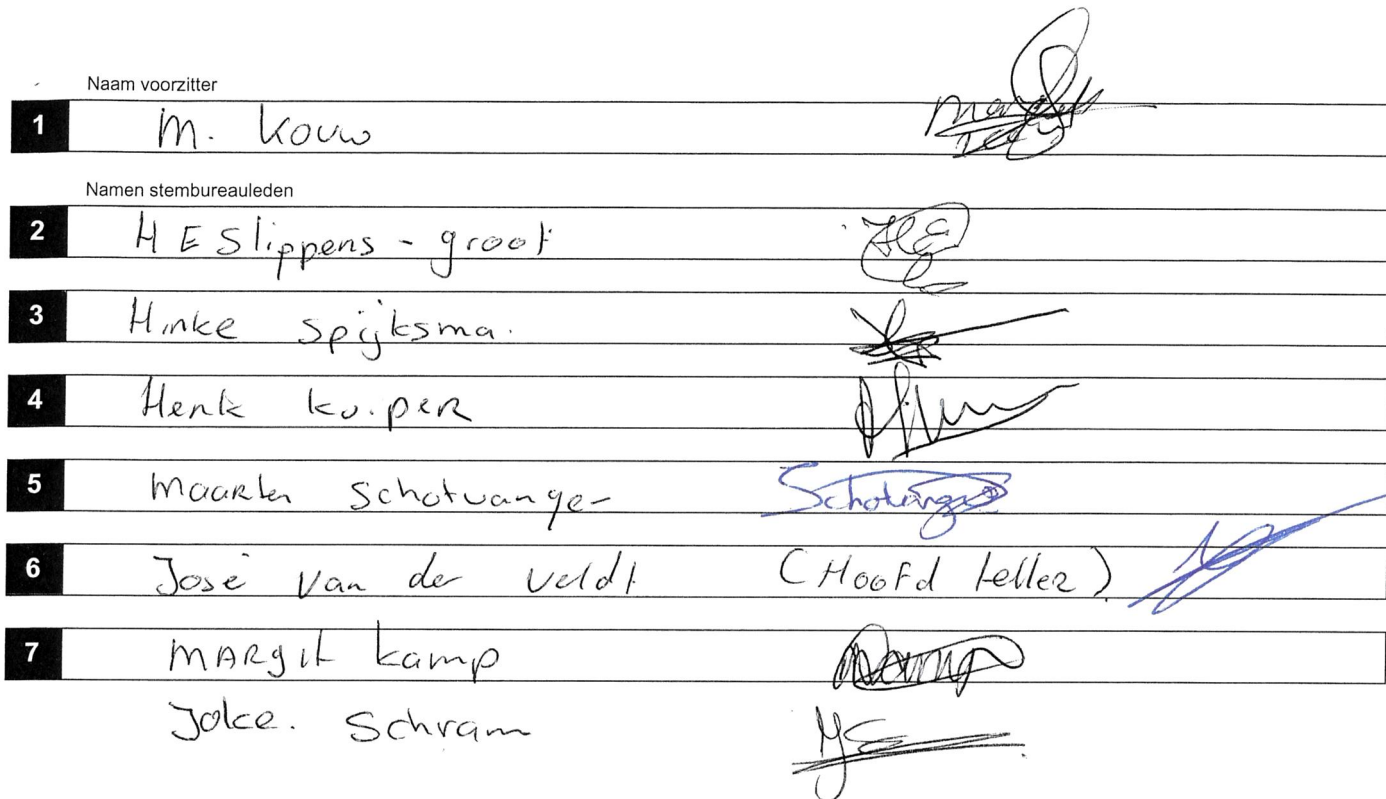 Naam voorzitter
1 M. Kouw
Namen stembureauleden
2 H E Slippens - groot
3 Hinke Spijksma.
4 Henk kuiper
5 Maarten Schotvanger
6 José Van der Veldt (Hoofd teller)
7 MARgit kamp
Jolce. Schram